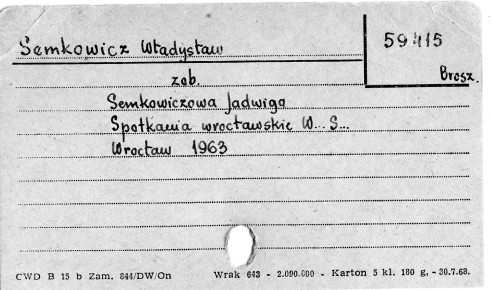 Semkowicz Władysław
59415
Brosz.
zob.
Semkowiczowa Jadwiga
Spotkania wrocławskie W... S...
Wrocław 1963
CWD B 15 b Zam. 844/DW/On Wrak 643 - 2.090.000 - Karton 5 kl. 180 g. - 30.7.68.